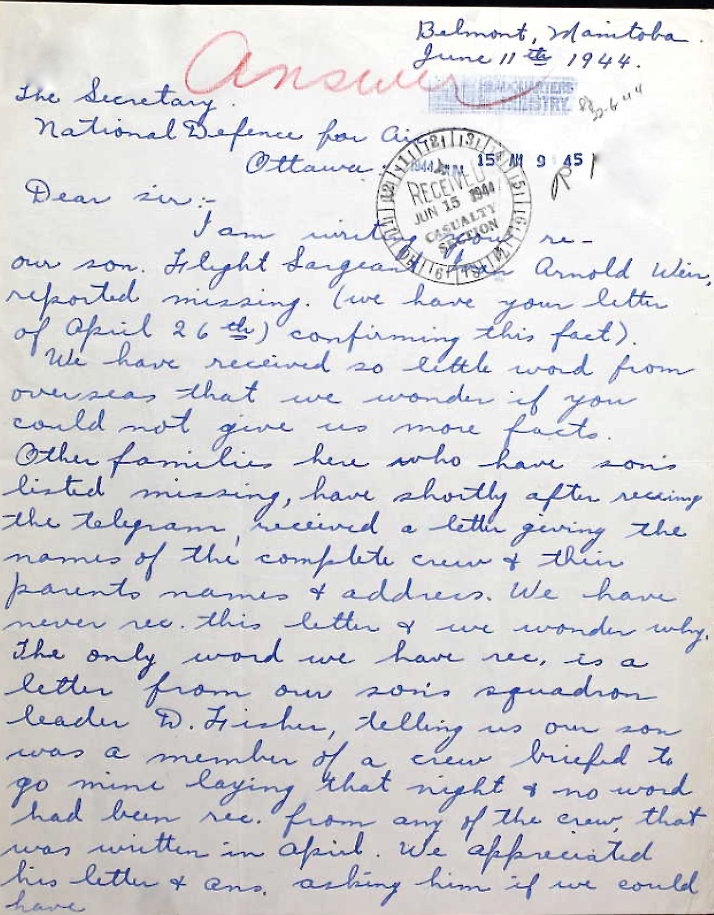 Belmont, Manitoba.
June 11th 1944.
Answer
HEADQUARTERS
REGISTRY
22-6-44
The Secretary.
National Defence for Air
Ottawa:
1944 JUN 15 AM 9 45
RECEIVED
JUN 15 1944
CASUALTY
SECTION
Dear sir:-
I am writing you re-
our son. Flight Sargeant Arnold Weir,
reported missing. (we have your letter
of April 26th) confirming this fact).
We have received so little word from
overseas that we wonder if you
could not give us more facts.
Other families here who have sons
listed missing, have shortly after receiving
the telegram, received a letter giving the
names of the complete crew & their
parents names & address. We have
never rec. this letter & we wonder why.
The only word we have rec. is a
letter from our son's squadron
leader D. Fisher, telling us our son
was a member of a crew briefed to
go mine laying that night & no word
had been rec. from any of the crew, that
was written in April. We appreciated
his letter & ans. asking him if we could
have